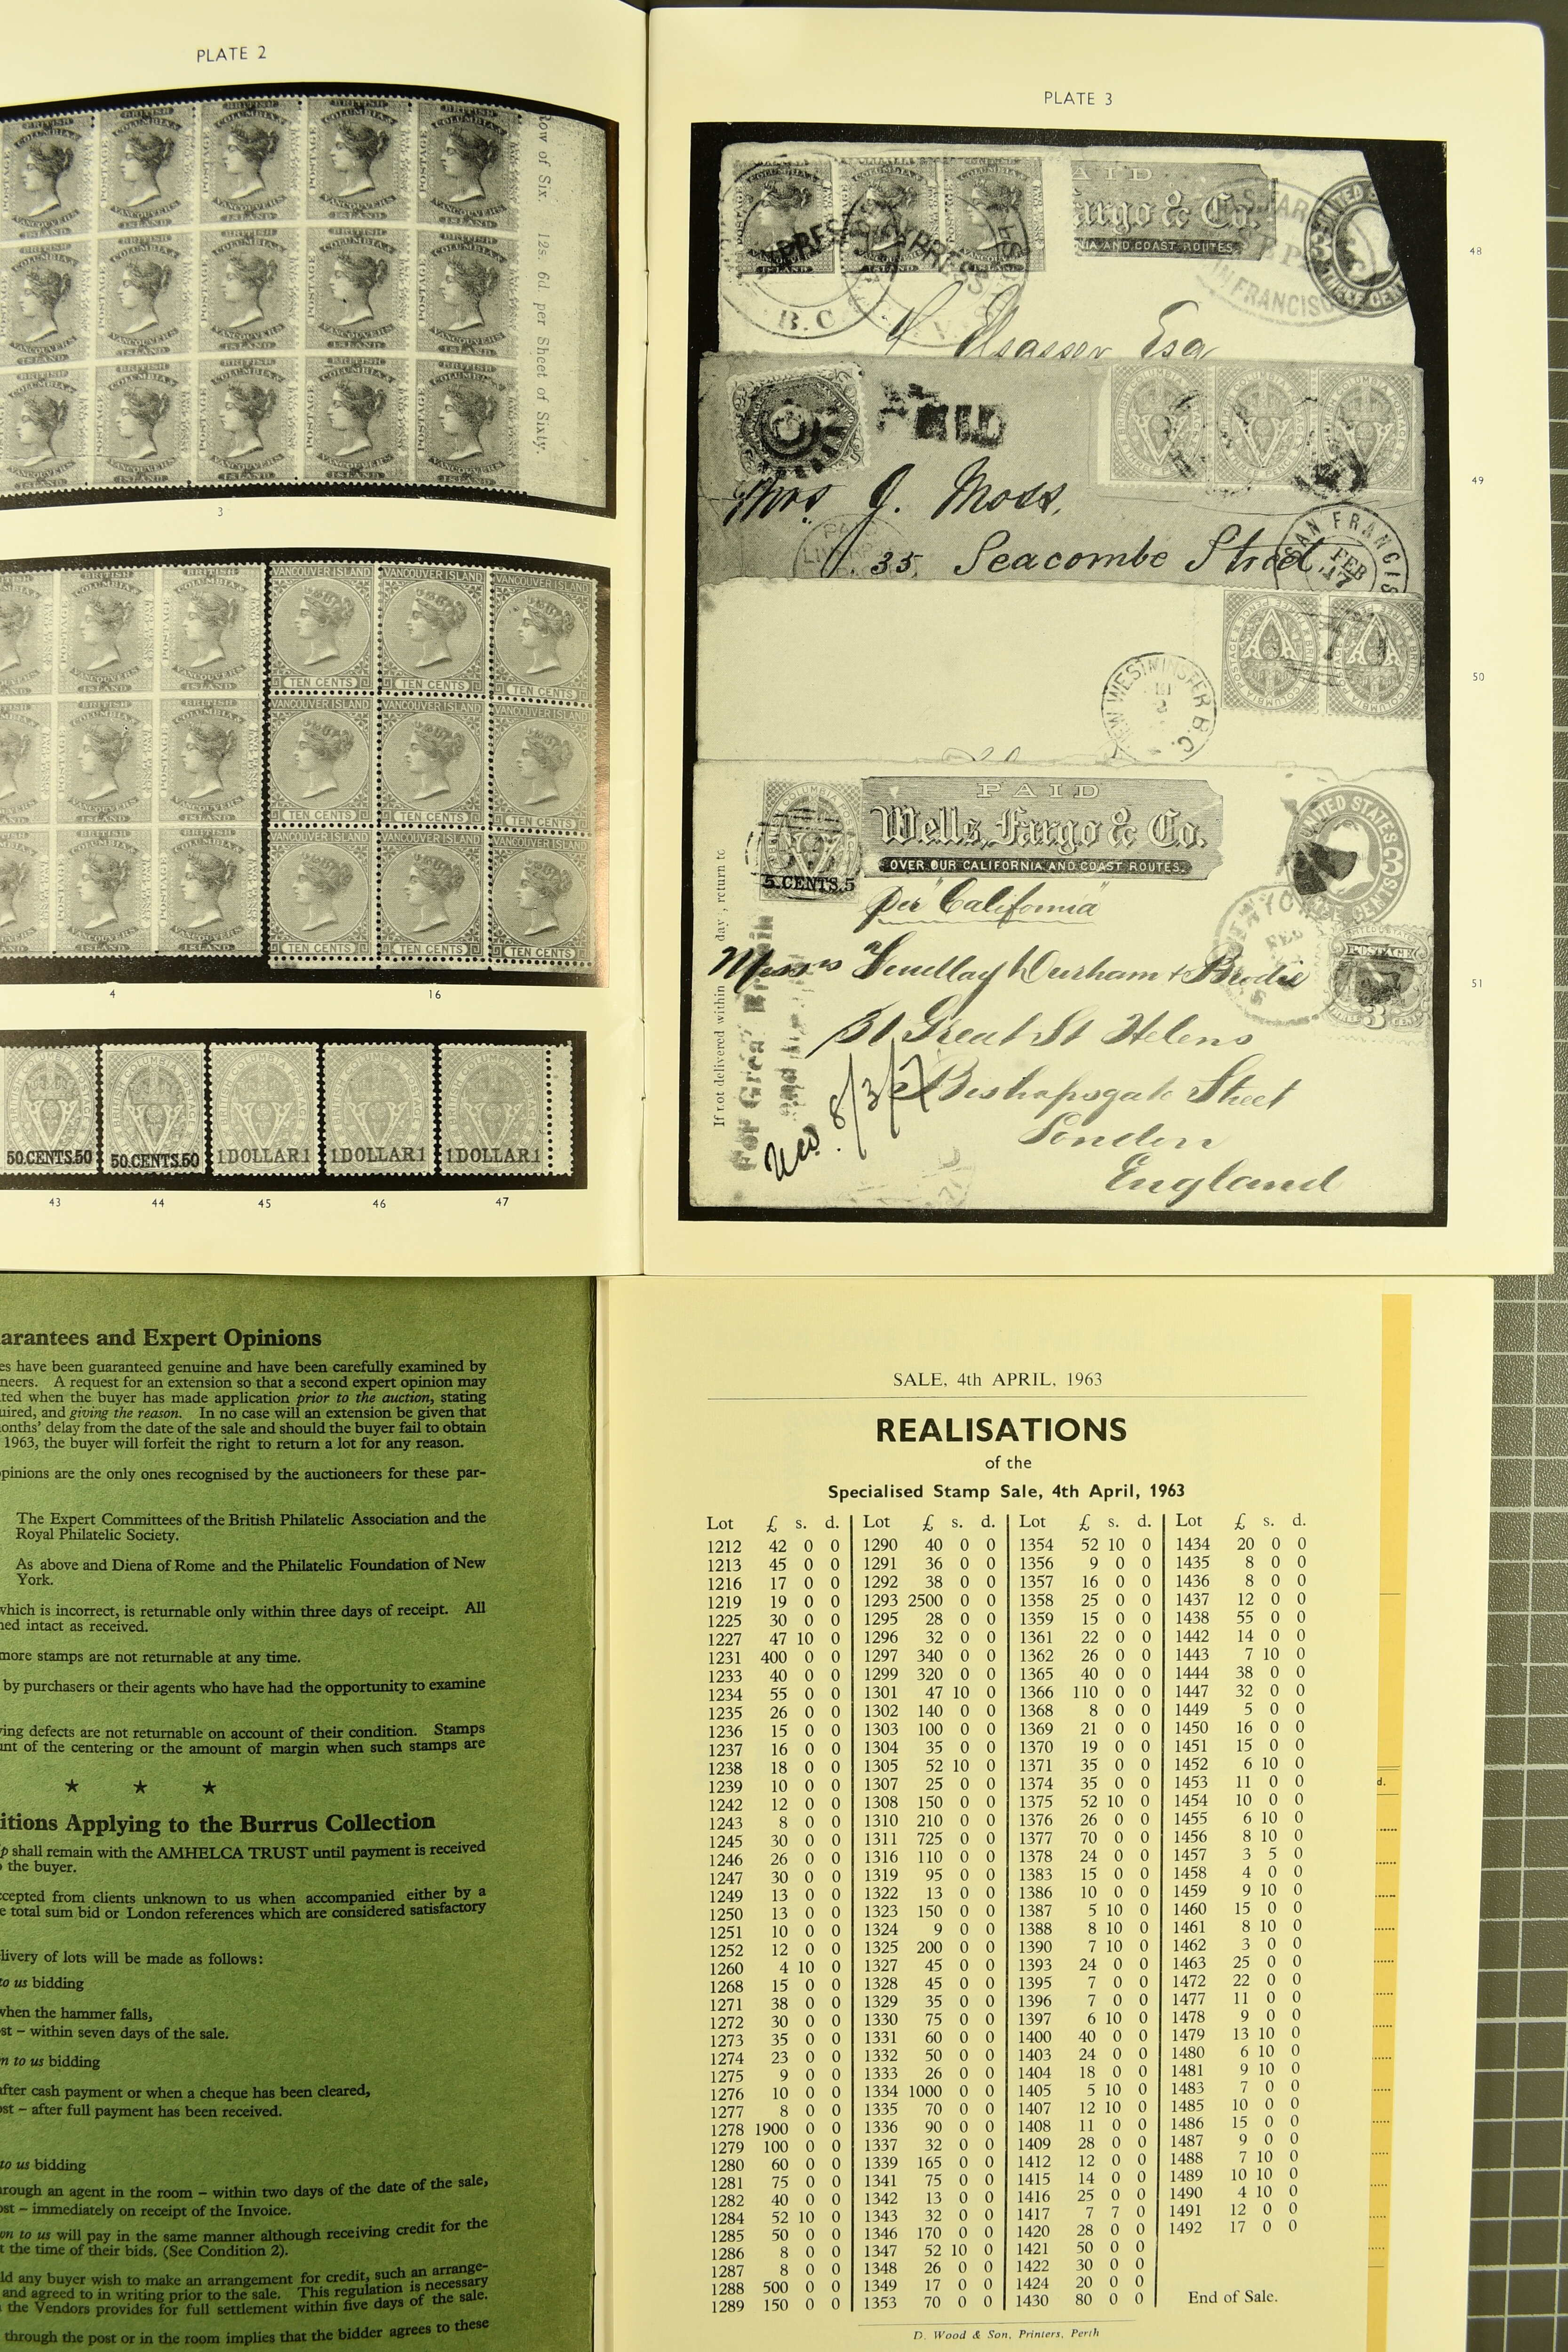 PLATE 2
Row of Six. 12s. 6d. per Sheet of Sixty.
3
4
16
VANCOUVER ISLAND VANCOUVER ISLAND VANCOUVER ISLAND
TEN CENTS TEN CENTS TEN CENTS
50.CENTS.50 50.CENTS.50 1DOLLAR1 1DOLLAR1 1DOLLAR1
43 44 45 46 47
PLATE 3
48
Fargo & Co.
AND COAST ROUTES.
B.C.
Esq
49
Mrs J. Moss,
35, Seacombe Street
SAN FRANCIS
FEB
17
50
NEW WESTMINSTER B.C.
51
PAID
Wells, Fargo & Co.
OVER OUR CALIFORNIA AND COAST ROUTES.
UNITED STATES
5.CENTS.5
per "California"
If not delivered within day , return to
For Great Britain
Durham & Brodie
31 Great St Helens
Bishopsgate Street
London
England
POSTAGE
arantees and Expert Opinions
es have been guaranteed genuine and have been carefully examined by
neers. A request for an extension so that a second expert opinion may
ted when the buyer has made application prior to the auction, stating
uired, and giving the reason. In no case will an extension be given that
onths' delay from the date of the sale and should the buyer fail to obtain
1963, the buyer will forfeit the right to return a lot for any reason.
pinions are the only ones recognised by the auctioneers for these par-
The Expert Committees of the British Philatelic Association and the
Royal Philatelic Society.
As above and Diena of Rome and the Philatelic Foundation of New
York.
which is incorrect, is returnable only within three days of receipt. All
ned intact as received.
more stamps are not returnable at any time.
by purchasers or their agents who have had the opportunity to examine
ving defects are not returnable on account of their condition. Stamps
unt of the centering or the amount of margin when such stamps are
★ ★ ★
itions Applying to the Burrus Collection
p shall remain with the AMHELCA TRUST until payment is received
the buyer.
ccepted from clients unknown to us when accompanied either by a
e total sum bid or London references which are considered satisfactory
livery of lots will be made as follows:
to us bidding
when the hammer falls,
st – within seven days of the sale.
n to us bidding
after cash payment or when a cheque has been cleared,
ost – after full payment has been received.
to us bidding
rough an agent in the room – within two days of the date of the sale,
ost – immediately on receipt of the Invoice.
wn to us will pay in the same manner although receiving credit for the
t the time of their bids. (See Condition 2).
ld any buyer wish to make an arrangement for credit, such an arrange-
and agreed to in writing prior to the sale. This regulation is necessary
the Vendors provides for full settlement within five days of the sale.
through the post or in the room implies that the bidder agrees to these
SALE, 4th APRIL, 1963
REALISATIONS
of the
Specialised Stamp Sale, 4th April, 1963
Lot £ s. d. Lot £ s. d. Lot £ s. d. Lot £ s. d.
1212 42 0 0 1290 40 0 0 1354 52 10 0 1434 20 0 0
1213 45 0 0 1291 36 0 0 1356 9 0 0 1435 8 0 0
1216 17 0 0 1292 38 0 0 1357 16 0 0 1436 8 0 0
1219 19 0 0 1293 2500 0 0 1358 25 0 0 1437 12 0 0
1225 30 0 0 1295 28 0 0 1359 15 0 0 1438 55 0 0
1227 47 10 0 1296 32 0 0 1361 22 0 0 1442 14 0 0
1231 400 0 0 1297 340 0 0 1362 26 0 0 1443 7 10 0
1233 40 0 0 1299 320 0 0 1365 40 0 0 1444 38 0 0
1234 55 0 0 1301 47 10 0 1366 110 0 0 1447 32 0 0
1235 26 0 0 1302 140 0 0 1368 8 0 0 1449 5 0 0
1236 15 0 0 1303 100 0 0 1369 21 0 0 1450 16 0 0
1237 16 0 0 1304 35 0 0 1370 19 0 0 1451 15 0 0
1238 18 0 0 1305 52 10 0 1371 35 0 0 1452 6 10 0
1239 10 0 0 1307 25 0 0 1374 35 0 0 1453 11 0 0
1242 12 0 0 1308 150 0 0 1375 52 10 0 1454 10 0 0
1243 8 0 0 1310 210 0 0 1376 26 0 0 1455 6 10 0
1245 30 0 0 1311 725 0 0 1377 70 0 0 1456 8 10 0
1246 26 0 0 1316 110 0 0 1378 24 0 0 1457 3 5 0
1247 30 0 0 1319 95 0 0 1383 15 0 0 1458 4 0 0
1249 13 0 0 1322 13 0 0 1386 10 0 0 1459 9 10 0
1250 13 0 0 1323 150 0 0 1387 5 10 0 1460 15 0 0
1251 10 0 0 1324 9 0 0 1388 8 10 0 1461 8 10 0
1252 12 0 0 1325 200 0 0 1390 7 10 0 1462 3 0 0
1260 4 10 0 1327 45 0 0 1393 24 0 0 1463 25 0 0
1268 15 0 0 1328 45 0 0 1395 7 0 0 1472 22 0 0
1271 38 0 0 1329 35 0 0 1396 7 0 0 1477 11 0 0
1272 30 0 0 1330 75 0 0 1397 6 10 0 1478 9 0 0
1273 35 0 0 1331 60 0 0 1400 40 0 0 1479 13 10 0
1274 23 0 0 1332 50 0 0 1403 24 0 0 1480 6 10 0
1275 9 0 0 1333 26 0 0 1404 18 0 0 1481 9 10 0
1276 10 0 0 1334 1000 0 0 1405 5 10 0 1483 7 0 0
1277 8 0 0 1335 70 0 0 1407 12 10 0 1485 10 0 0
1278 1900 0 0 1336 90 0 0 1408 11 0 0 1486 15 0 0
1279 100 0 0 1337 32 0 0 1409 28 0 0 1487 9 0 0
1280 60 0 0 1339 165 0 0 1412 12 0 0 1488 7 10 0
1281 75 0 0 1341 75 0 0 1415 14 0 0 1489 10 10 0
1282 40 0 0 1342 13 0 0 1416 25 0 0 1490 4 10 0
1284 52 10 0 1343 32 0 0 1417 7 7 0 1491 12 0 0
1285 50 0 0 1346 170 0 0 1420 28 0 0 1492 17 0 0
1286 8 0 0 1347 52 10 0 1421 50 0 0
1287 8 0 0 1348 26 0 0 1422 30 0 0
1288 500 0 0 1349 17 0 0 1424 20 0 0 End of Sale.
1289 150 0 0 1353 70 0 0 1430 80 0 0
D. Wood & Son, Printers, Perth
d.